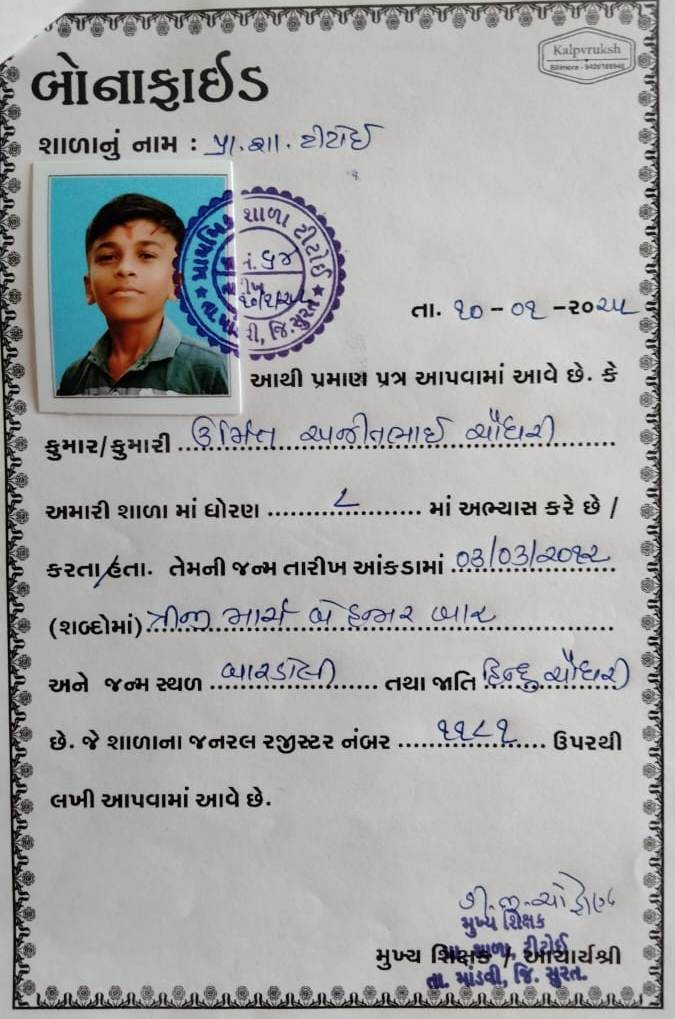 Kalpvruksh
Bilimora - 9426188946
બોનાફાઇડ
શાળાનું નામ : પ્રા. શા. ટીટોઈ
પ્રાથમિક શાળા ટીટોઈ
તા. માંડવી, જિ. સુરત
તા. ૧૦ - ૦૧ - ૨૦૨૫
આથી પ્રમાણ પત્ર આપવામાં આવે છે. કે
કુમાર/કુમારી ઉર્મિત અજીતભાઈ ચૌધરી
અમારી શાળા માં ધોરણ ૮ માં અભ્યાસ કરે છે /
કરતા/હતા. તેમની જન્મ તારીખ આંકડામાં ૦૩/૦૩/૨૦૧૨
(શબ્દોમાં) ત્રીજી માર્ચ બે હજાર બાર
અને જન્મ સ્થળ બારડોલી તથા જાતિ હિન્દુ ચૌધરી
છે. જે શાળાના જનરલ રજીસ્ટર નંબર ૧૧૮૧ ઉપરથી
લખી આપવામાં આવે છે.
મુખ્ય શિક્ષક
પ્રા. શાળા, ટીટોઈ
મુખ્ય શિક્ષક / આચાર્યશ્રી
તા. માંડવી, જિ. સુરત.